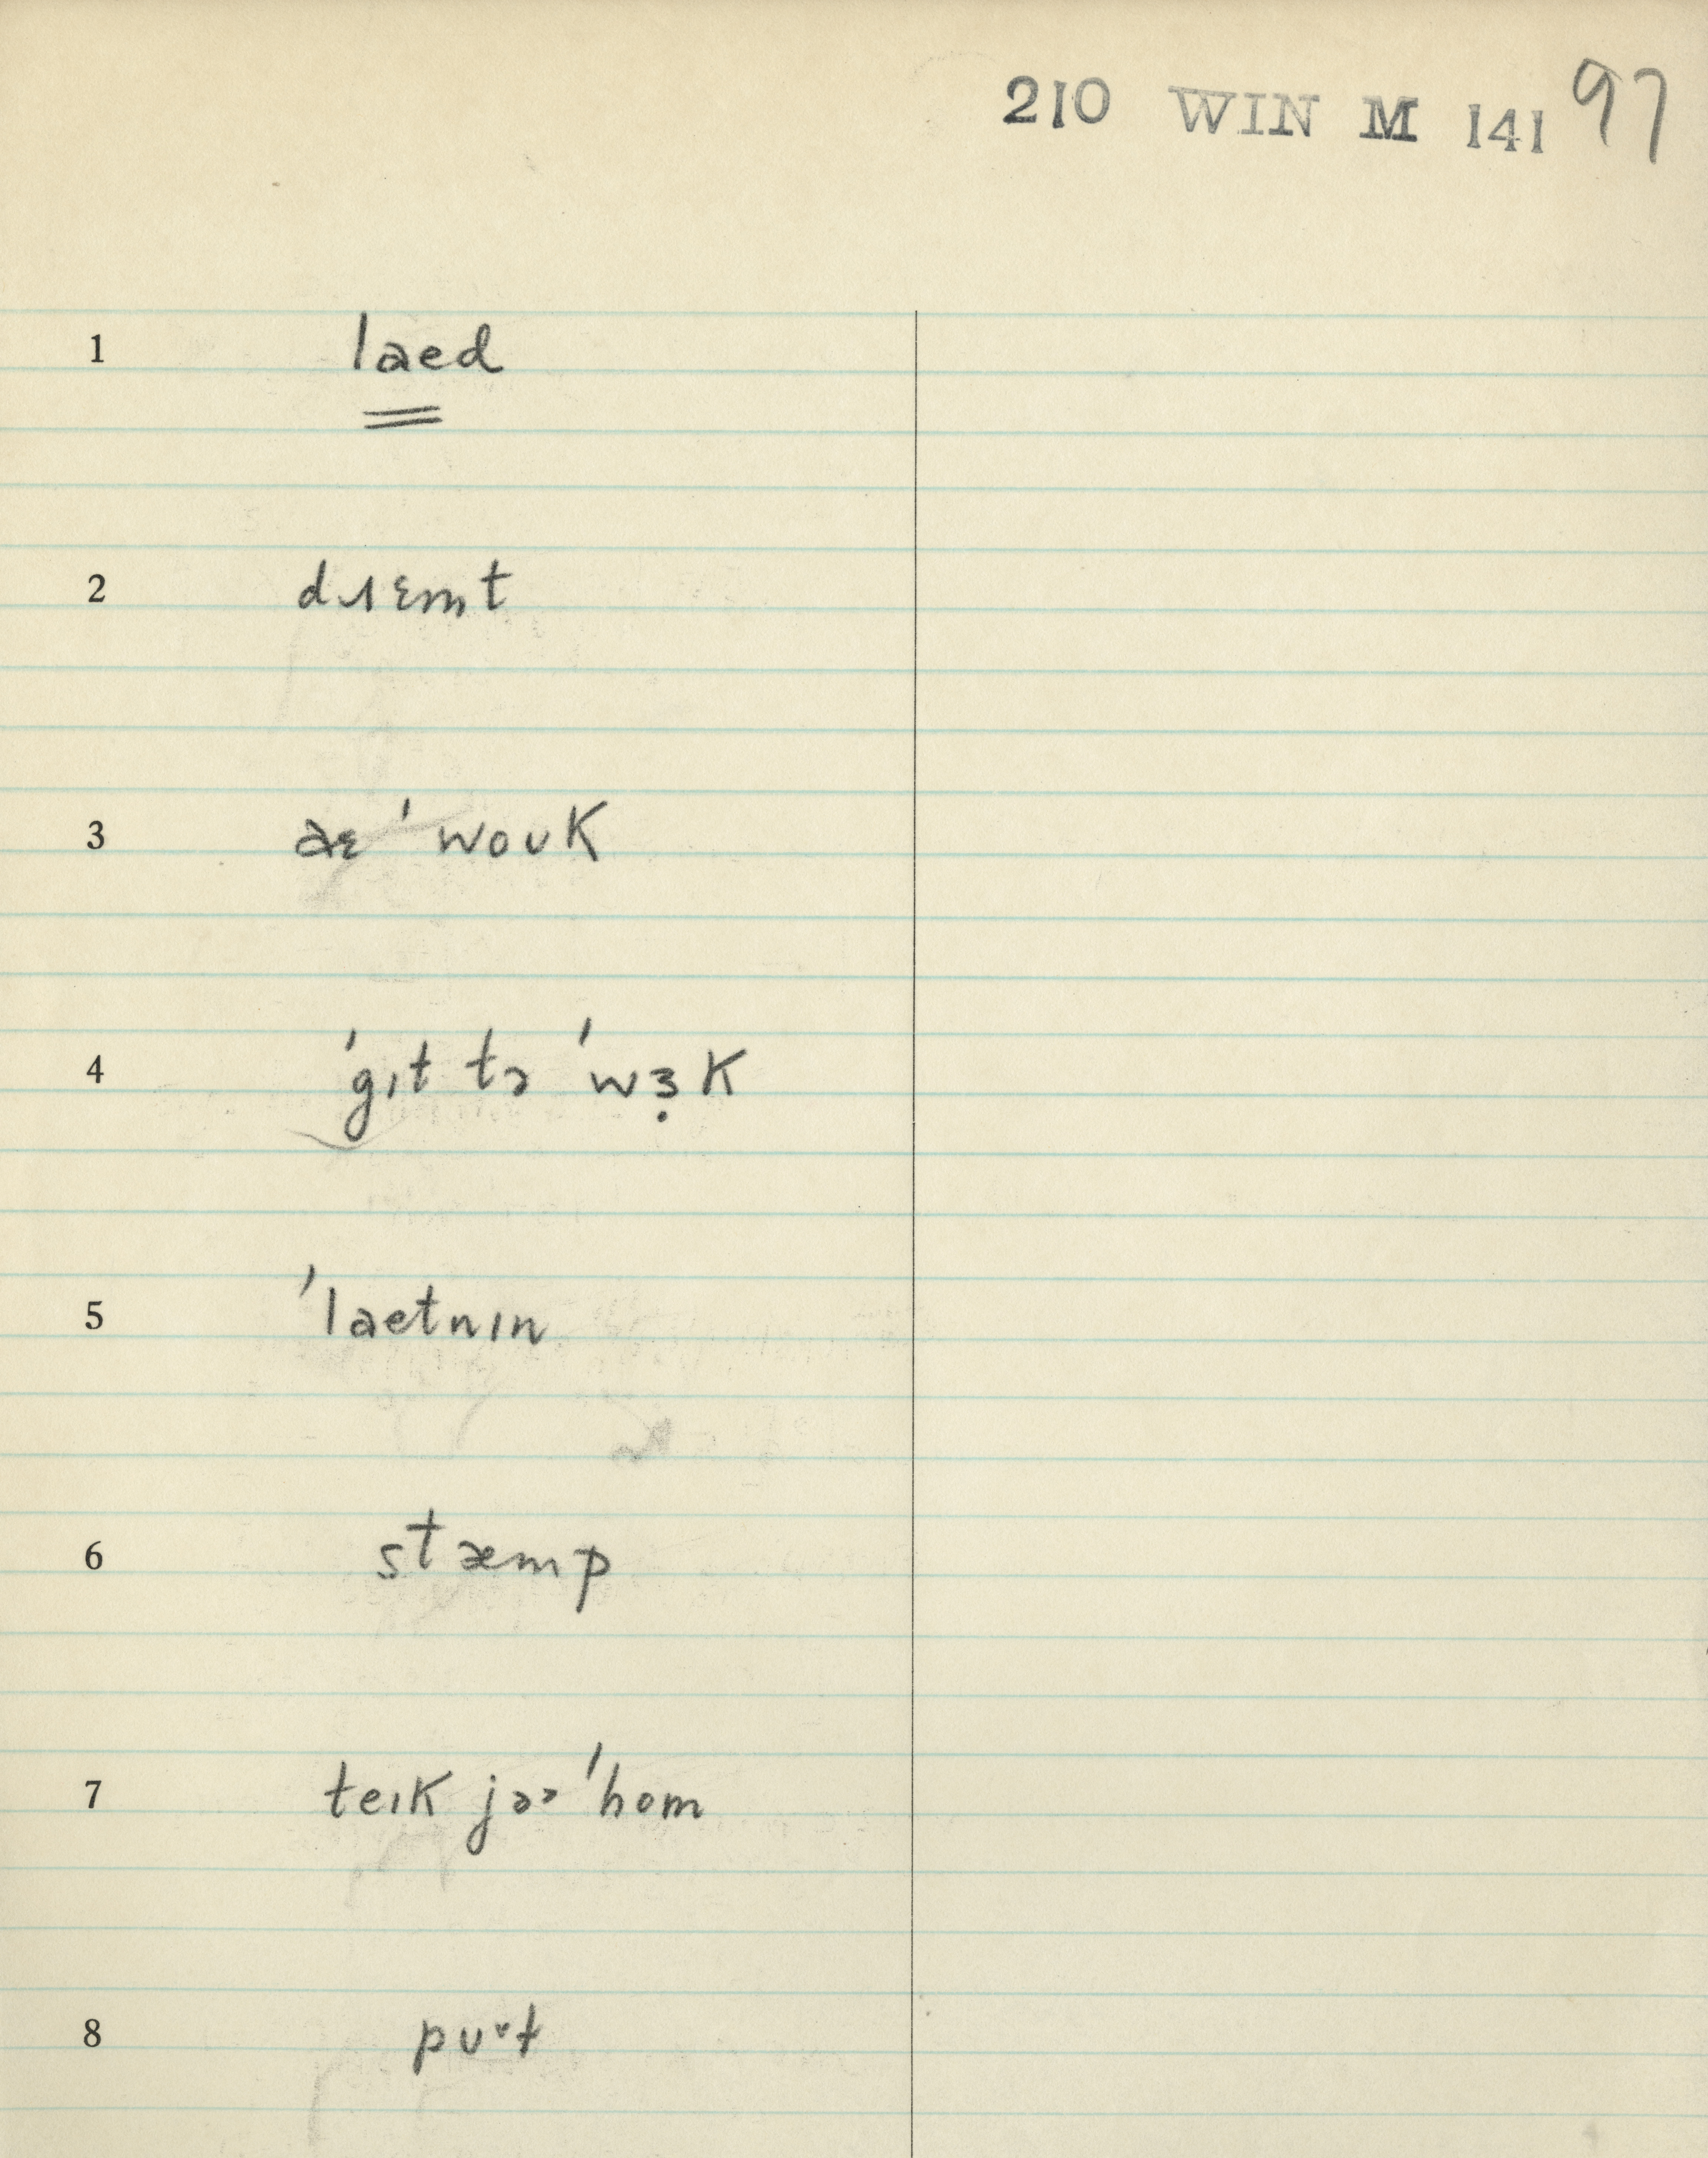 210 WIN M 141 97
1 laed
2 dɹɛmt
3 aɛ ˈwouk
4 ˈgɪt tə ˈwɜ̣k
5 ˈlaetnɪn
6 stæmp
7 teɪk jəɚ ˈhom
8 puᵛt